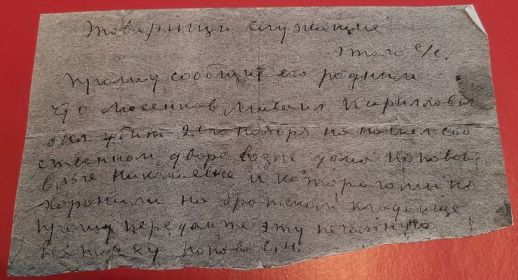 Товарищи служащие
этого с/с.
прошу сообщит его родным
что Мосенков Михаил Кириллови
был убит 2 го ноября на нашем соб
ственном дворе возле дома попова
и которого мы по
хоронили на братском кладбище
прошу передайте эту печальную
попова